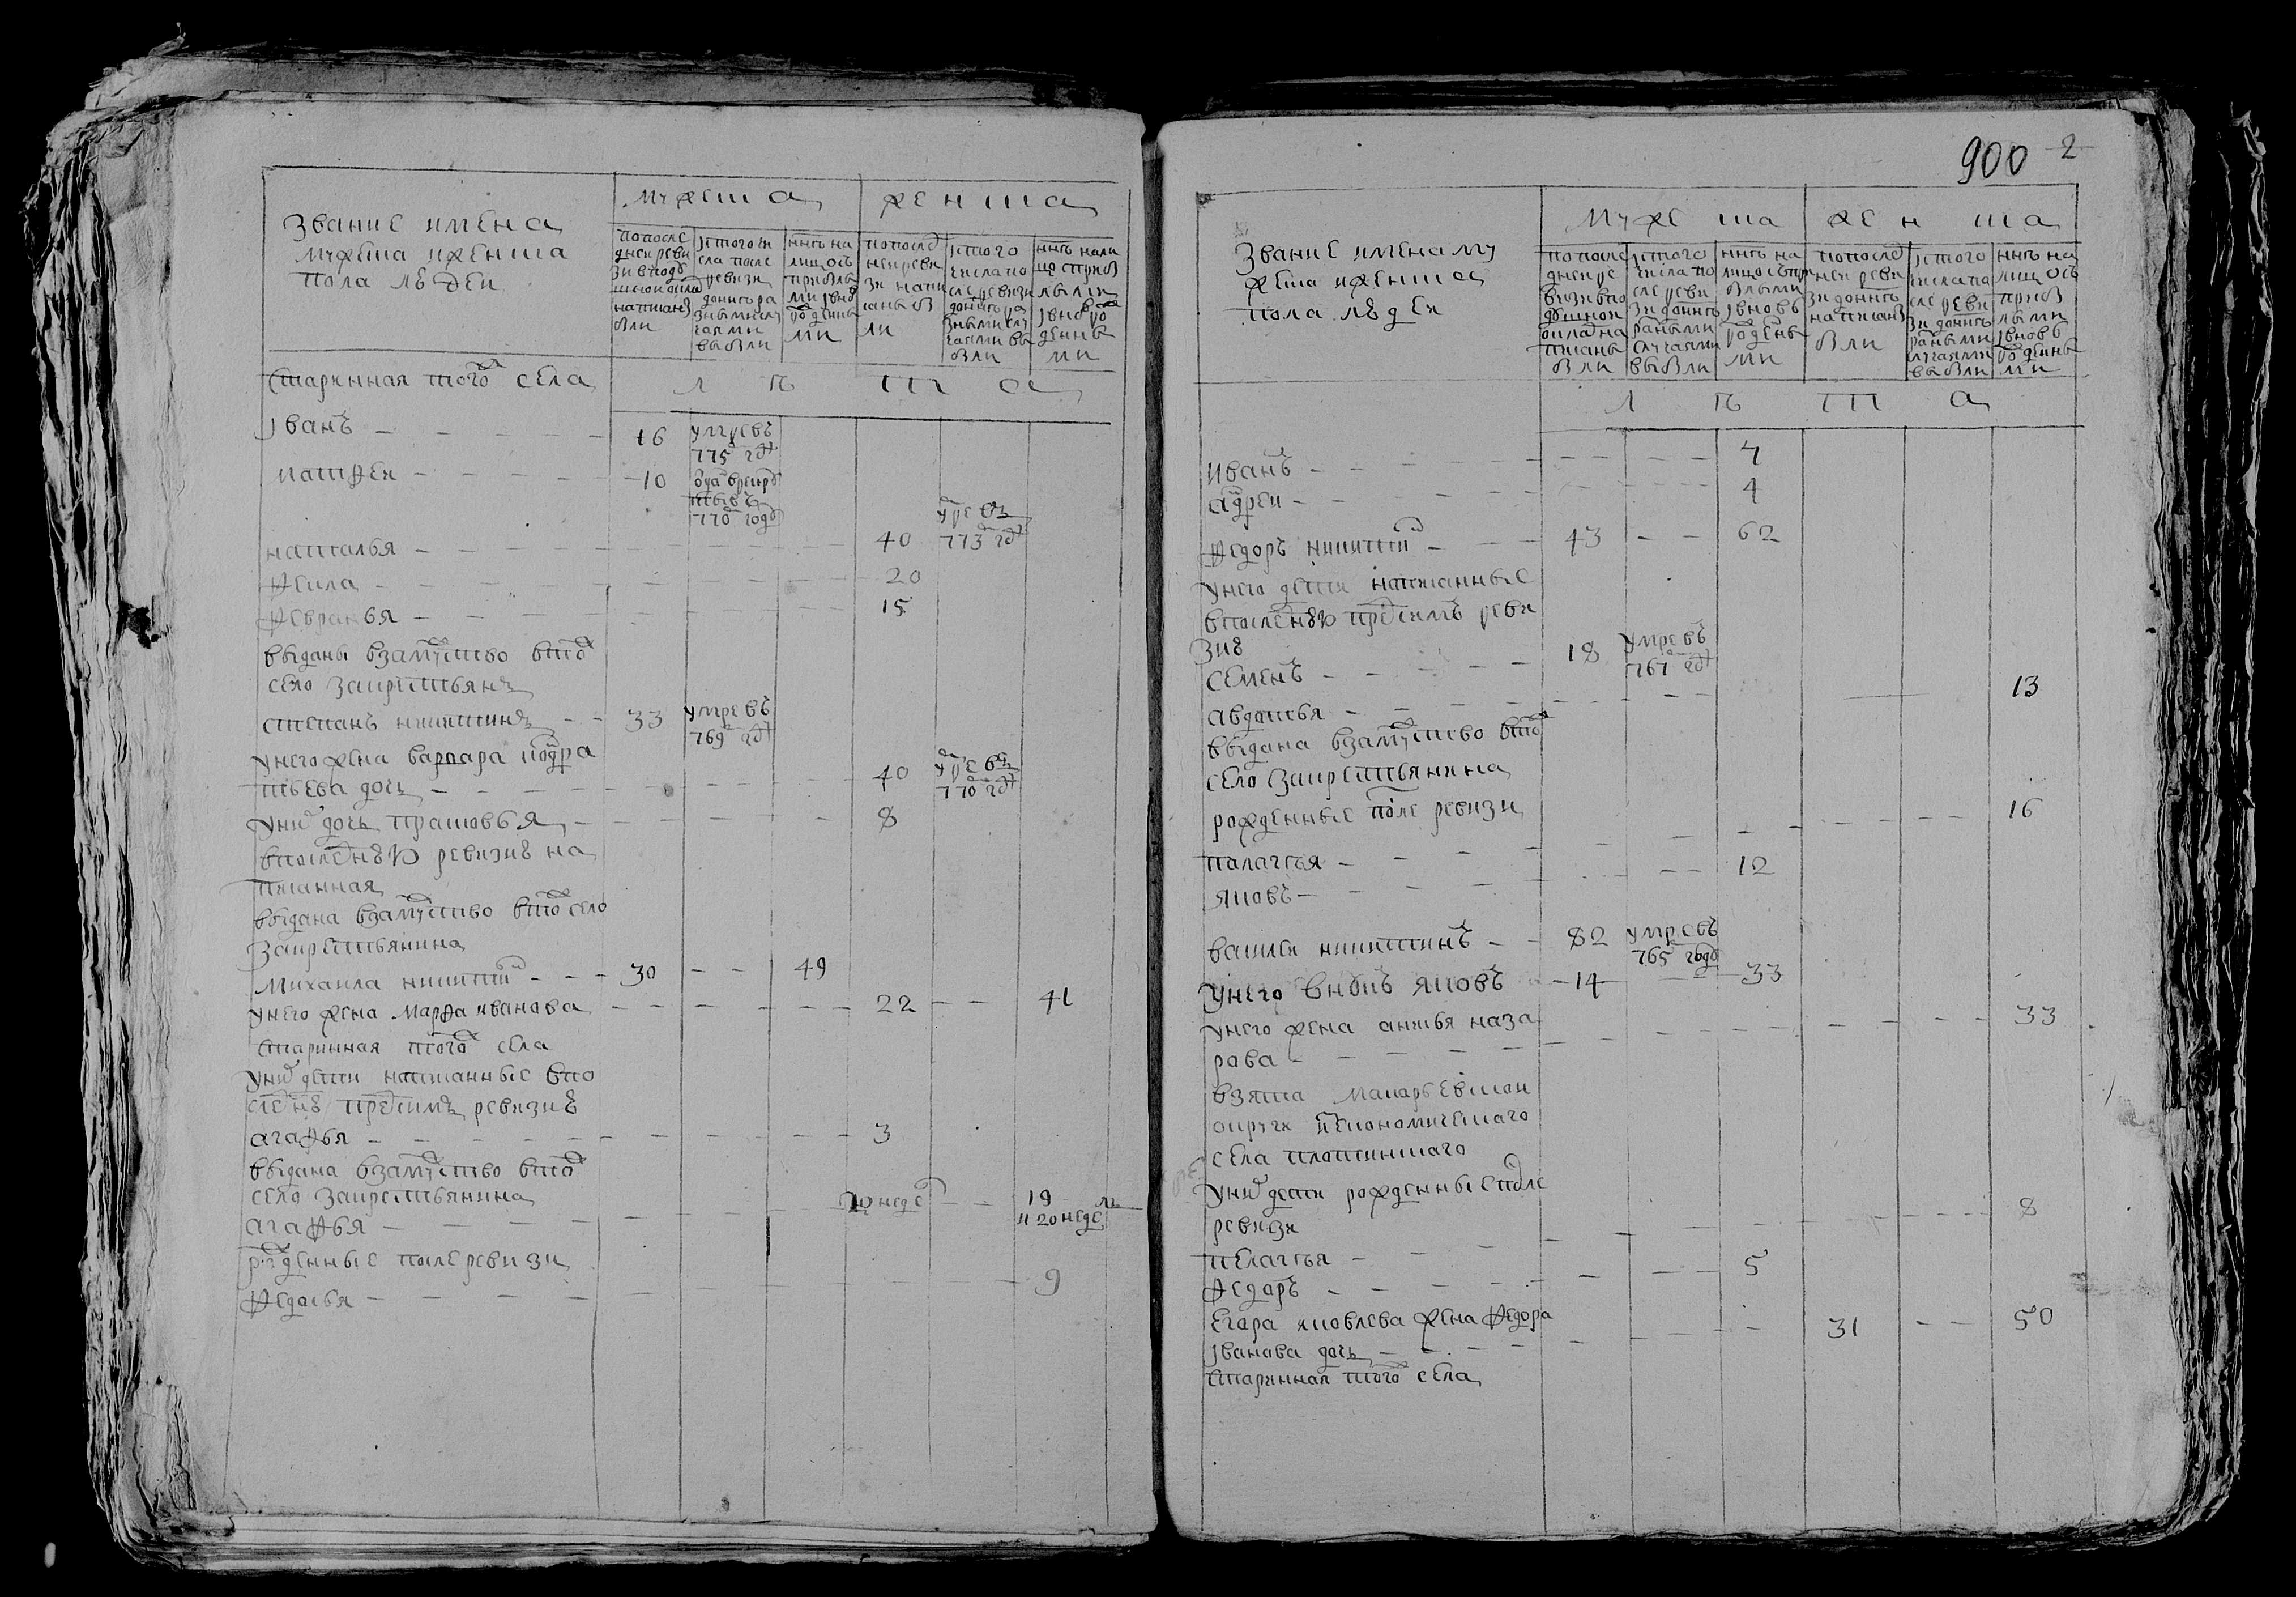 звание имена
мужеска иженска
пола людеи
мужеска
женска
попосле
днеи реви
зии вподу
шнои окла
написан
были
ис того чи
сла после
ревизи
донне ра
зными слу
чаями
выбыли
ныне на
лицо съ
прибылы
ми ивно
рожденны
ми
попослед
неи реви
зи напи
саны бы
ли
ис того
числа по
сле ревизи
донне ра
зными слу
чаями вы
были
ныне нали
цо с приб
ылыми
ивновь ро
жденны
ми
старинная того села
л ѣ т а
иванъ — 16 умре въ
775 году
матфеи — 10 отдан врекру
ты въ
770 году
наталья — 40 умре въ
773 году
фекла — 20
февранья — 15
выданы взамужство втож
село закрестьянъ
степанъ никитинъ — 33 умре въ
769 году
унего жена варвара кондра
тьева дочь — 40 умре въ
770 году
уних дочь прасковья — 8
впоследнюю ревизию на
писанная
выдана взамужство втож село
закрестьянина
михаила никитин — 30 — 49
унего жена марфа иванова — 22 — 41
старинная того села
уних дети написанные впо
следнюю пред сим ревизию
агафья — 3
выдана взамужство втож
село закрестьянина
агафья — 20 недел — 19
и 20 недель
рожденные после ревизи
федосья — 9
900 2
звание имена му
жеска иженска
пола людеи
мужеска
женска
попосле
днеи ре
визи впо
душнои
оклад на
писаны
были
ис того
числа по
сле реви
зи донне
разными
случаями
выбыли
ныне на
лицо съ при
былыми
ивновь
рожденны
ми
попослед
неи реви
зи донне
написаны
были
ис того
числа по
сле реви
зи донне
разными
случаями
выбыли
ныне на
лицо съ
прибы
лыми
ивновь
рожденны
ми
л ѣ т а
иванъ — 7
андреи — 4
федоръ никитин — 43 — 62
унего дети написанные
впоследнюю пред симъ реви
зию
семенъ — 18 умре въ
767 году
авдотья — 13
выдана взамужство втож
село закрестьянина
рожденные после ревизи
палагея — 16
яковъ — 12
василеи никитинъ — 82 умре въ
765 году
унего внукъ яковъ — 14 — 33
унего жена анисья наза
рова — 33
взята макарьевскои
округи экономического
села плотинского
уних дети рожденные после
ревизи
пелагея — 8
федоръ — 5
егора яковлева жена федора
иванова дочь — 31 — 50
старинная того села